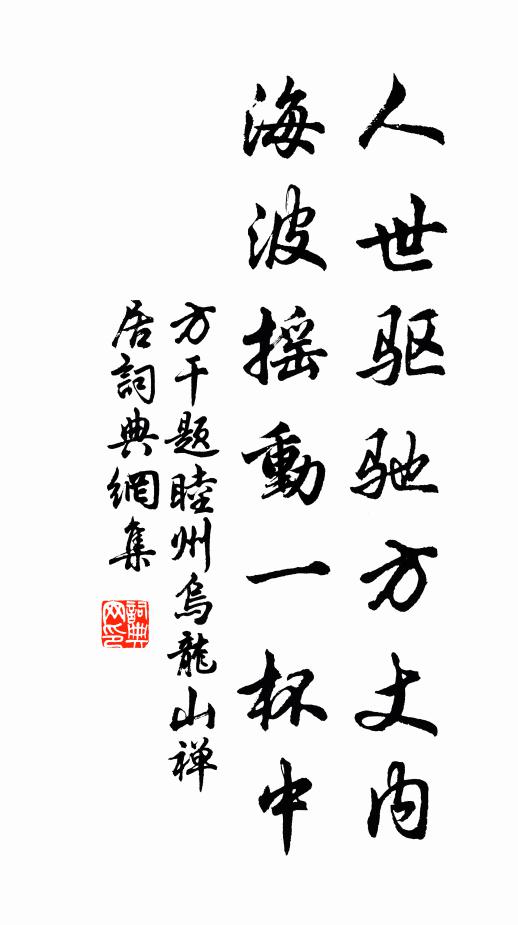 人世驱驰方丈内
海波摇動一杯中
方干题睦州烏龍山禅
居詞典網集
詞典网印